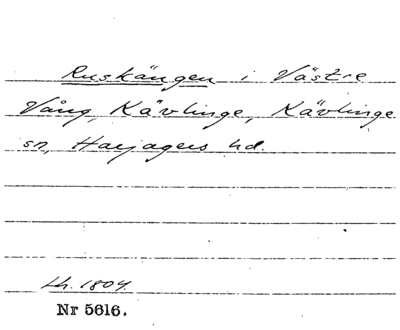 Ruskängen i Västre
Vång, Kävlinge, Kävlinge
sn, Harjagers hd.
Lh. 1804.
Nr 5616.